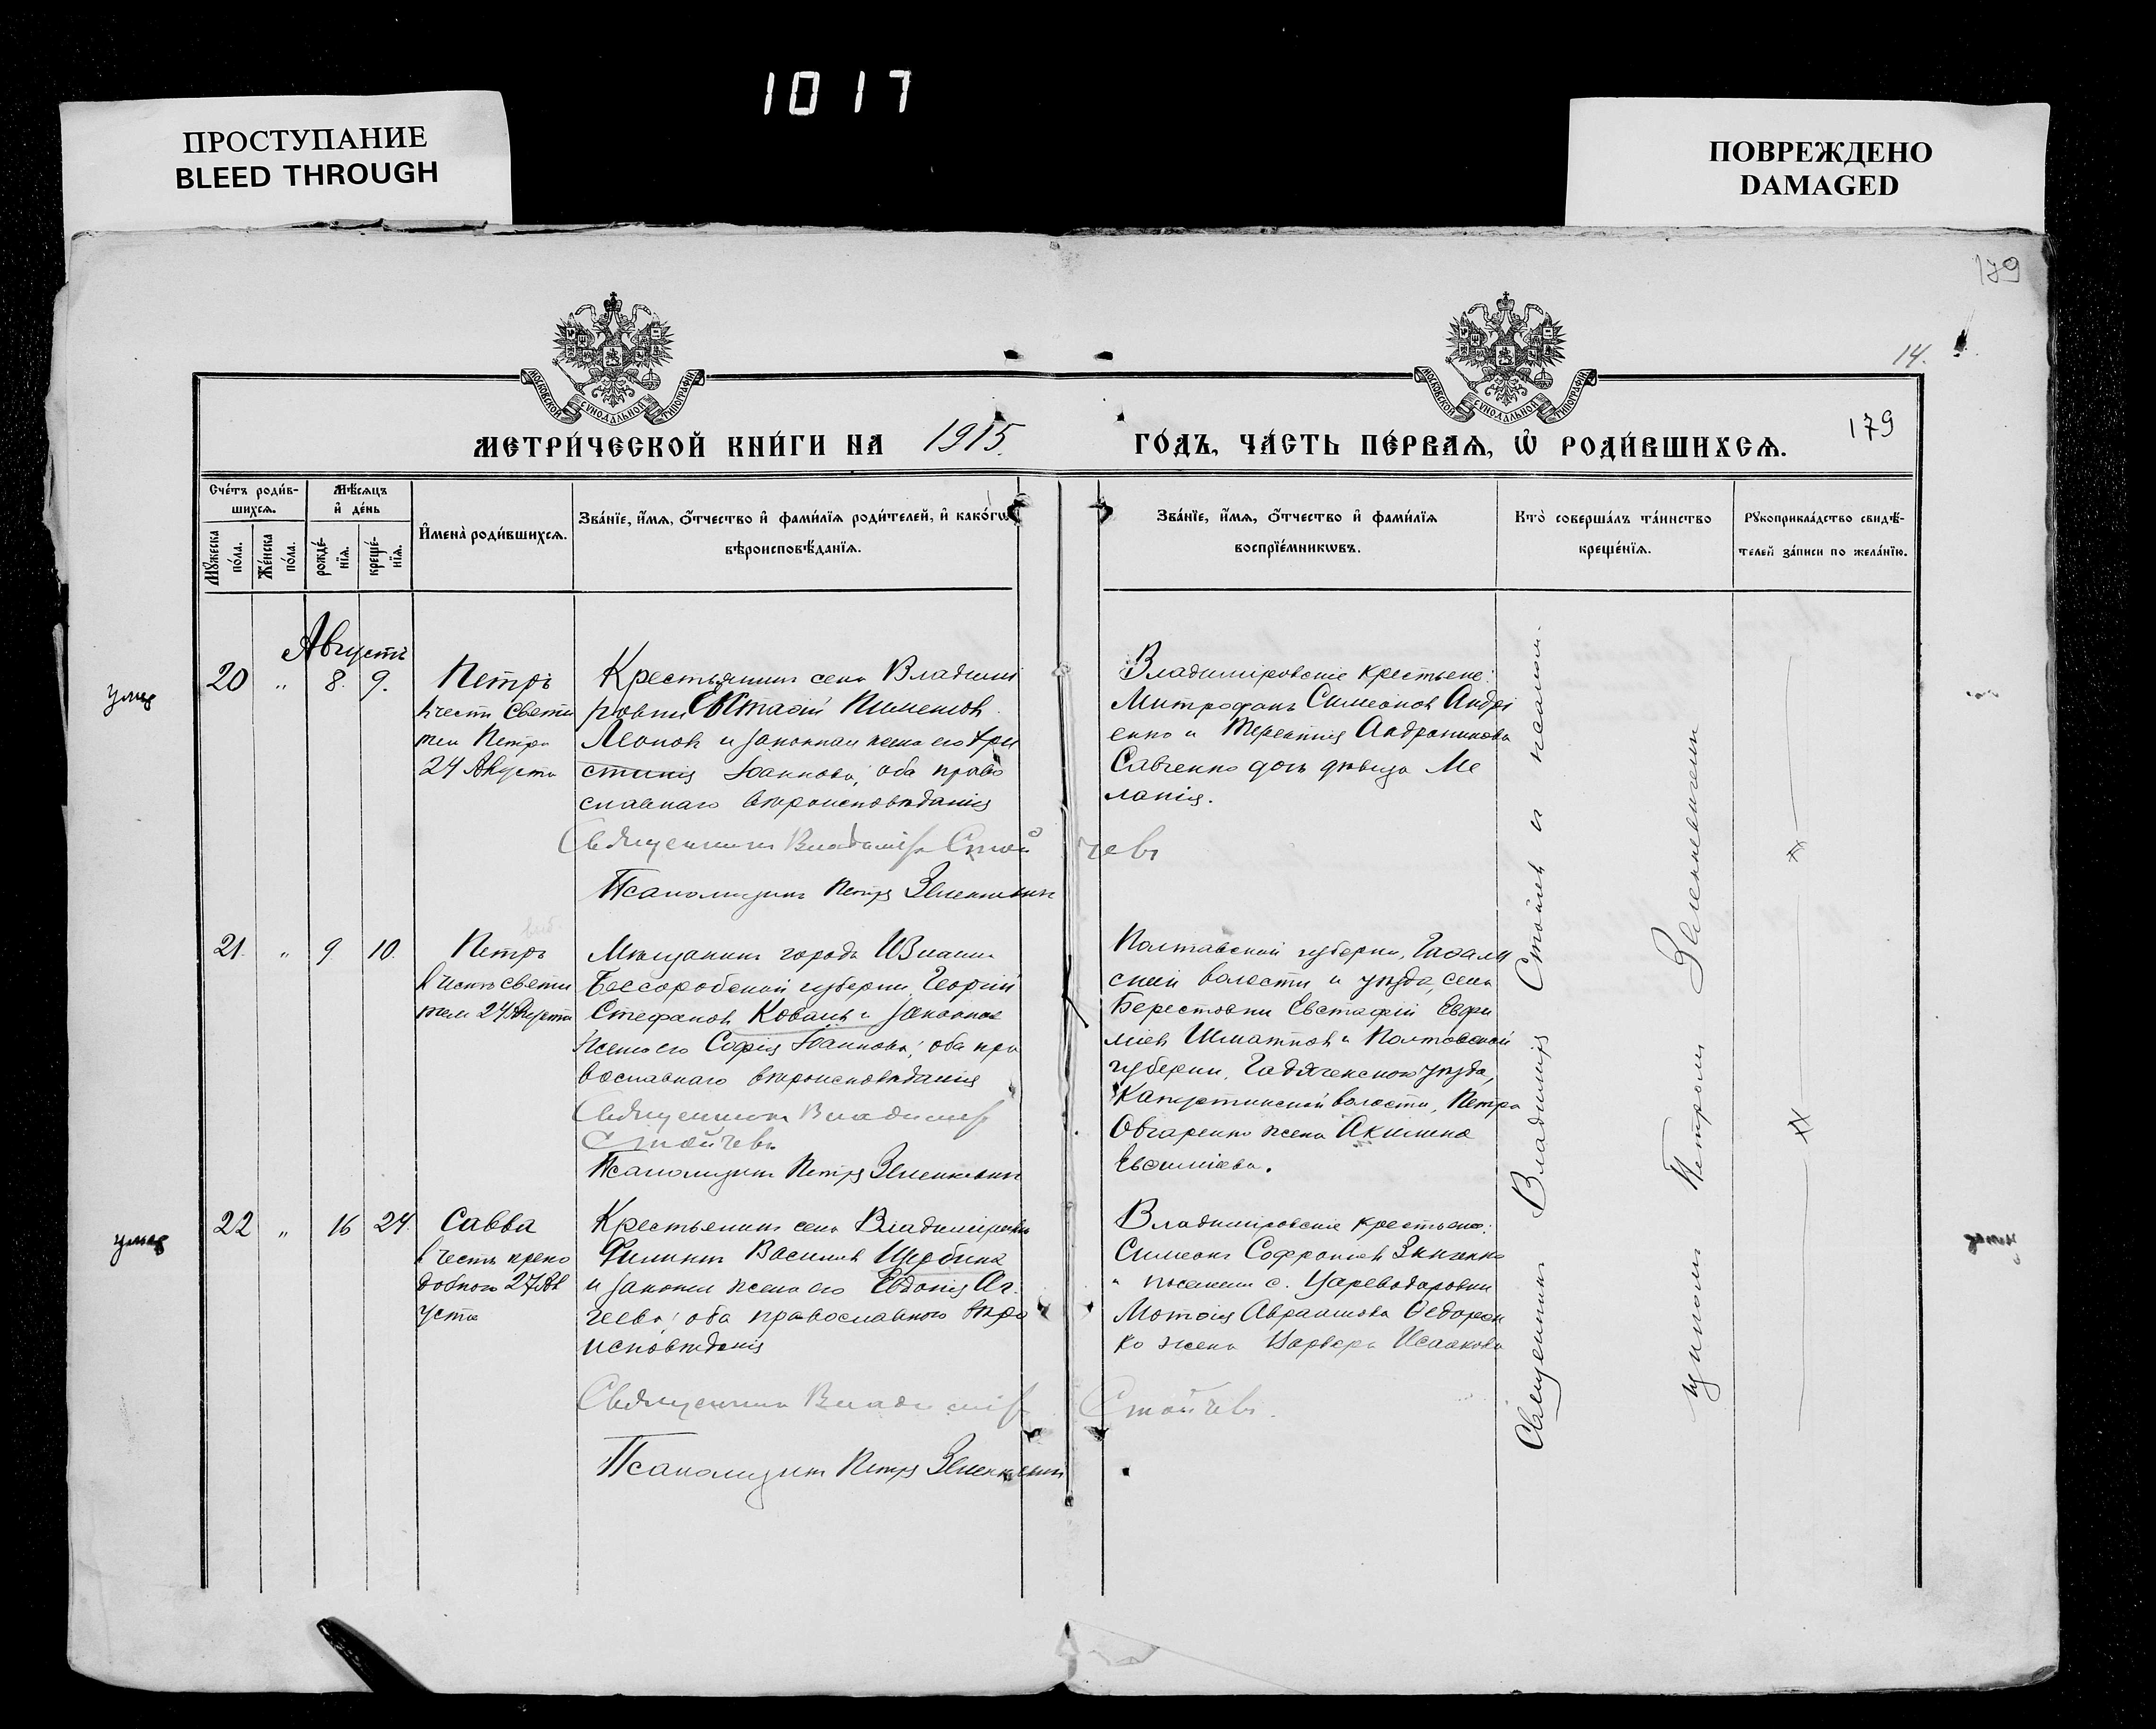 1017
ПРОСТУПАНИЕ
BLEED THROUGH
ПОВРЕЖДЕНО
DAMAGED
179
14.
179
МОСКОВСКОЙ СѴНОДАЛЬНОЙ ТИПОГРАФІИ
МОСКОВСКОЙ СѴНОДАЛЬНОЙ ТИПОГРАФІИ
МЕТРИ́ЧЕСКОЙ КНИ́ГИ НА 1915. ГО́ДЪ, ЧА́СТЬ ПЕ́РВАѦ, Ѿ РОДИ́ВШИХСѦ.
Сче́тъ роди́в-
шихсѧ.
Мꙋ́жеска по́ла.
Же́нска по́ла.
Мѣ́сѧцъ
и҆ де́нь
рожде́-нїѧ.
креще́-нїѧ.
И҆мена̀ роди́вшихсѧ.
Зва́нїе, и҆́мѧ, ѻ҆́тчество и҆ фами́лїѧ роди́телей, и҆ како́гѡ
вѣроисповѣ́данїѧ.
Зва́нїе, и҆́мѧ, ѻ҆́тчество и҆ фами́лїѧ
воспрїе́мникѡвъ.
Кто̀ соверша́лъ та́инство
креще́нїѧ.
Рꙋкоприкла́дство свидѣ́-
телей за́писи по жела́нїю.
Августъ
умер
20 " 8. 9.
Петръ
в честь Святи
теля Петра
24 Августа
Крестьянинъ села Владими
ровки Евстафій Пименовъ
Леоновъ и законная жена его Хри
стинія Іоаннова, оба право
славнаго вѣроисповѣданія
Священникъ Владиміръ Стойчевъ
Псаломщикъ Петръ Зеленкевичъ
Владиміровскіе крестьяне:
Митрофанъ Симеоновъ Андрі
енко и Терентія Андроникова
Савченко дочь дѣвица Ме
ланія.
21. " 9 10.
Петръ
в честь святи
теля 24 Августа
Мѣщанинъ города Измаила
Бессарабской губерніи, Георгій
Стефановъ Коваль и законная
жена его Софія Іоаннова, оба пра
вославнаго вѣроисповѣданія
Священникъ Владиміръ
Стойчевъ
Псаломщикъ Петръ Зеленкевичъ
Полтавской губерніи,
волости и уѣзда, села
Берестовки Евстафій Евфи
міевъ и Полтавской
губерніи, Гадяченскаго уѣзда,
Капустинской волости, Петра
Овчаренко жена Акилина
умер
22 " 16 24.
Савва
в честь препо
добнаго 27 Ав
густа
Крестьянинъ села Владиміровки
Филиппъ Василіевъ Щербина
и законная жена его Евдокія
оба православнаго вѣро
исповѣданія
Священникъ Владиміръ Стойчевъ.
Псаломщикъ Петръ Зеленкевичъ
Владиміровскіе крестьяне:
Симеонъ Софроніевъ Зинченко
и поселянина с. Цареводаровки
Авраамова Ѳедорен
ко жена Варвара Исаакова
Священникъ Владиміръ Стойчевъ и псалом-
щикомъ Петромъ Зеленкевичемъ